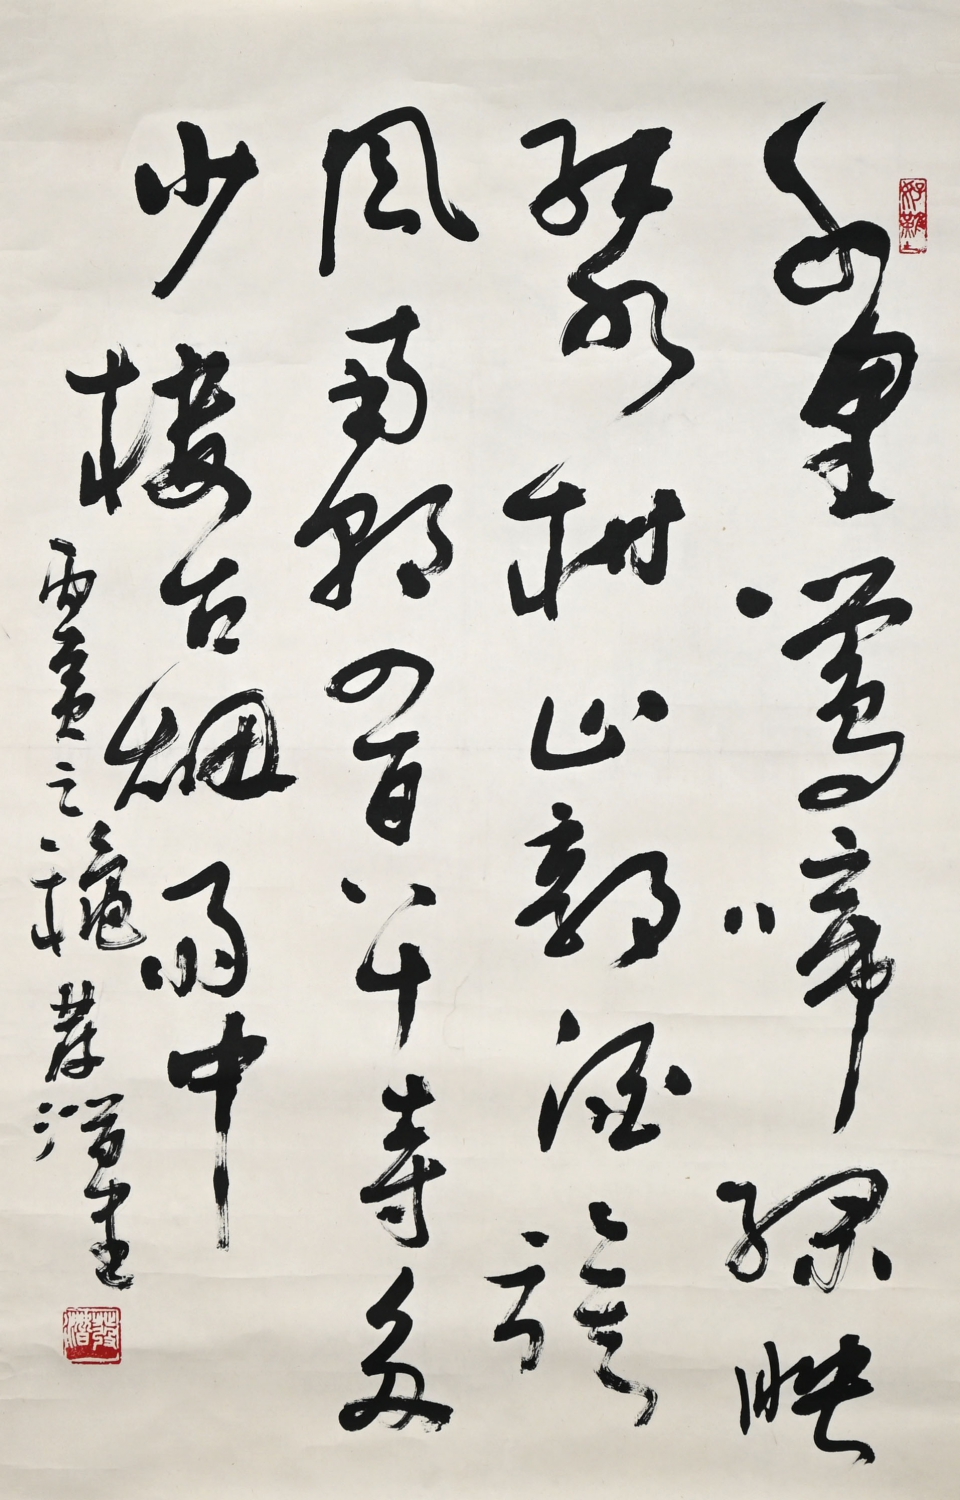 千里鶯啼綠映
紅水村山郭酒旗
風南朝四百八十寺多
少樓台烟雨中
丙寅之穐發潛書
發潛